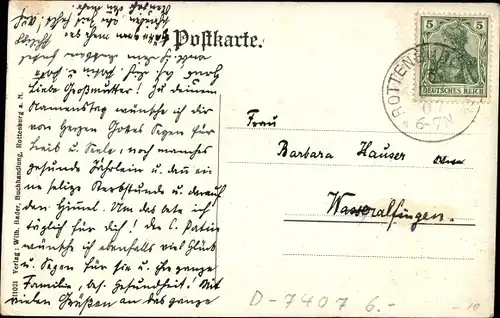 Postkarte.
5 5
DEUTSCHES REICH
ROTTENBURG
6-7N
Liebe Großmutter! Zu deinem
Namenstag wünsche ich dir
von Herzen Gottes Segen für
Leib u. Seele, noch manches
gesunde Jährlein u. dann ein
ne selige Sterbstunde u. darauf
den Himmel. Um das bete ich
täglich für dich! Der l. Patin
wünsche ich ebenfalls viel Glück
u. Segen für sie u. ihre ganze
Familie, bes. Gesundheit! Mit
vielen Grüßen an das ganze
Frau
Barbara Hauser
Wasseralfingen.
D-7407 6.-
Verlag: Wilh. Bader, Buchhandlung, Rottenburg a. N.